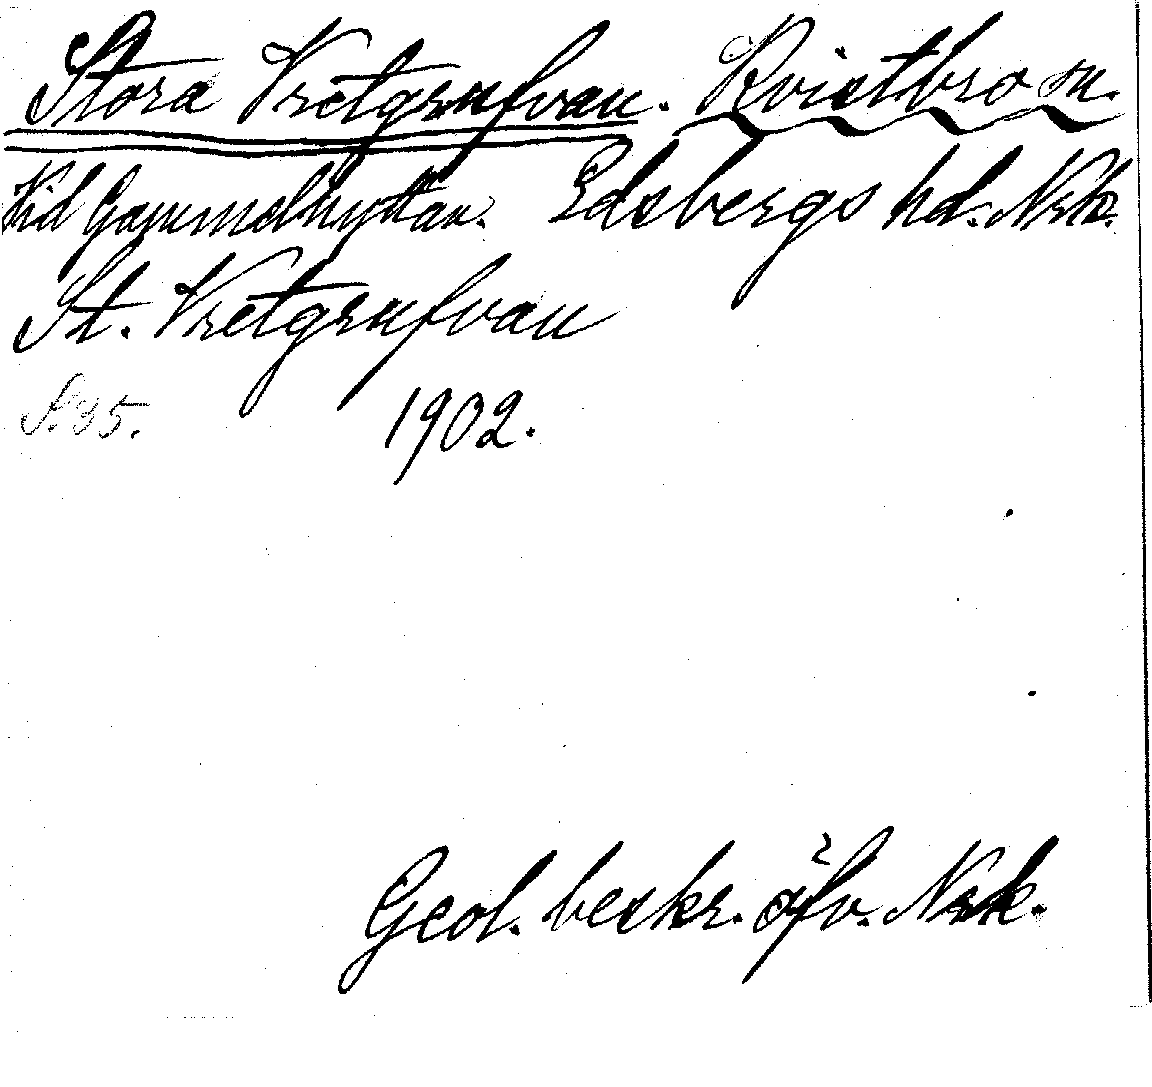 Stora Vretgrufvan. Kvistbro sn.
Vid Gammelhyttan. Edsbergs hd. Nrk.
St. Vretgrufvan
S. 35. 1902.
Geol. beskr. öfv. Nrk.